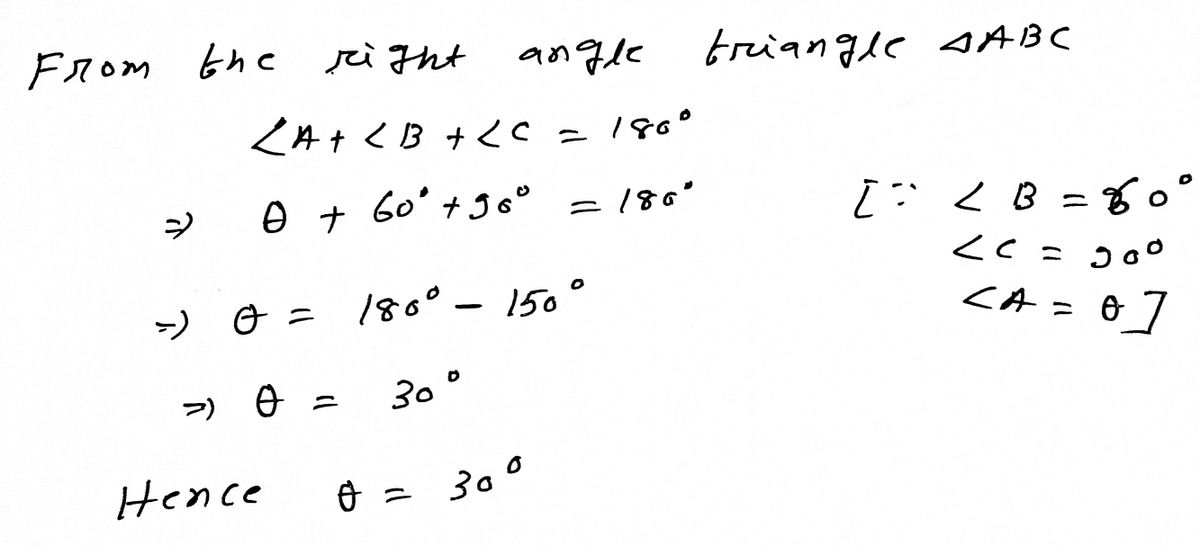 From the right angle triangle ΔABC
∠A + ∠B + ∠C = 180°
⇒ θ + 60° + 90° = 180° [∵ ∠B = 60°
∠C = 90°
⇒ θ = 180° - 150° ∠A = θ]
⇒ θ = 30°
Hence θ = 30°